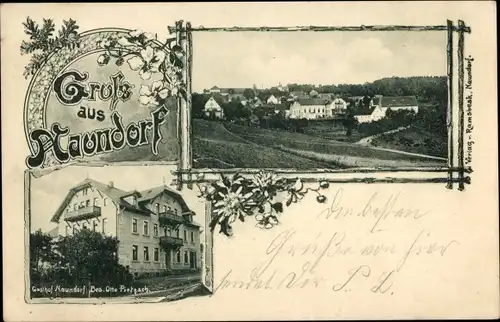 Gruß
aus
Naundorf
Verlag - Ramsbeck, Naundorf.
Gasthof Naundorf, Bes. Otto Pietzsch.
Die besten
Grüße von hier
sendet Dir